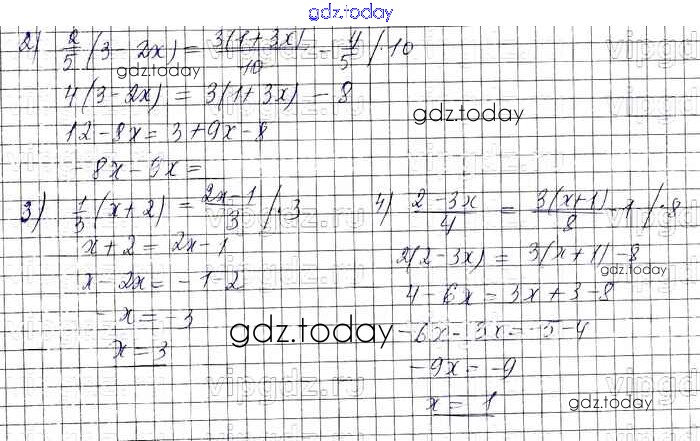 gdz.today
2) 2/5 (3 - 2x) = 3(1+3x)/10 - 4/5 /·10
gdz.today
4(3-2x) = 3(1+3x) - 8
gdz.today
12-8x = 3+9x-8
-8x-9x=
3) 1/3 (x+2) = 2x-1/3 /·3
x+2 = 2x-1
x-2x = -1-2
-x = -3
x = 3
gdz.today
4) 2-3x/4 = 3(x+1)/8 - 1 /·8
2(2-3x) = 3(x+1)-8
gdz.today
4-6x = 3x+3-8
-6x-3x = -5-4
-9x = -9
x = 1
gdz.today
vipgdz.ru